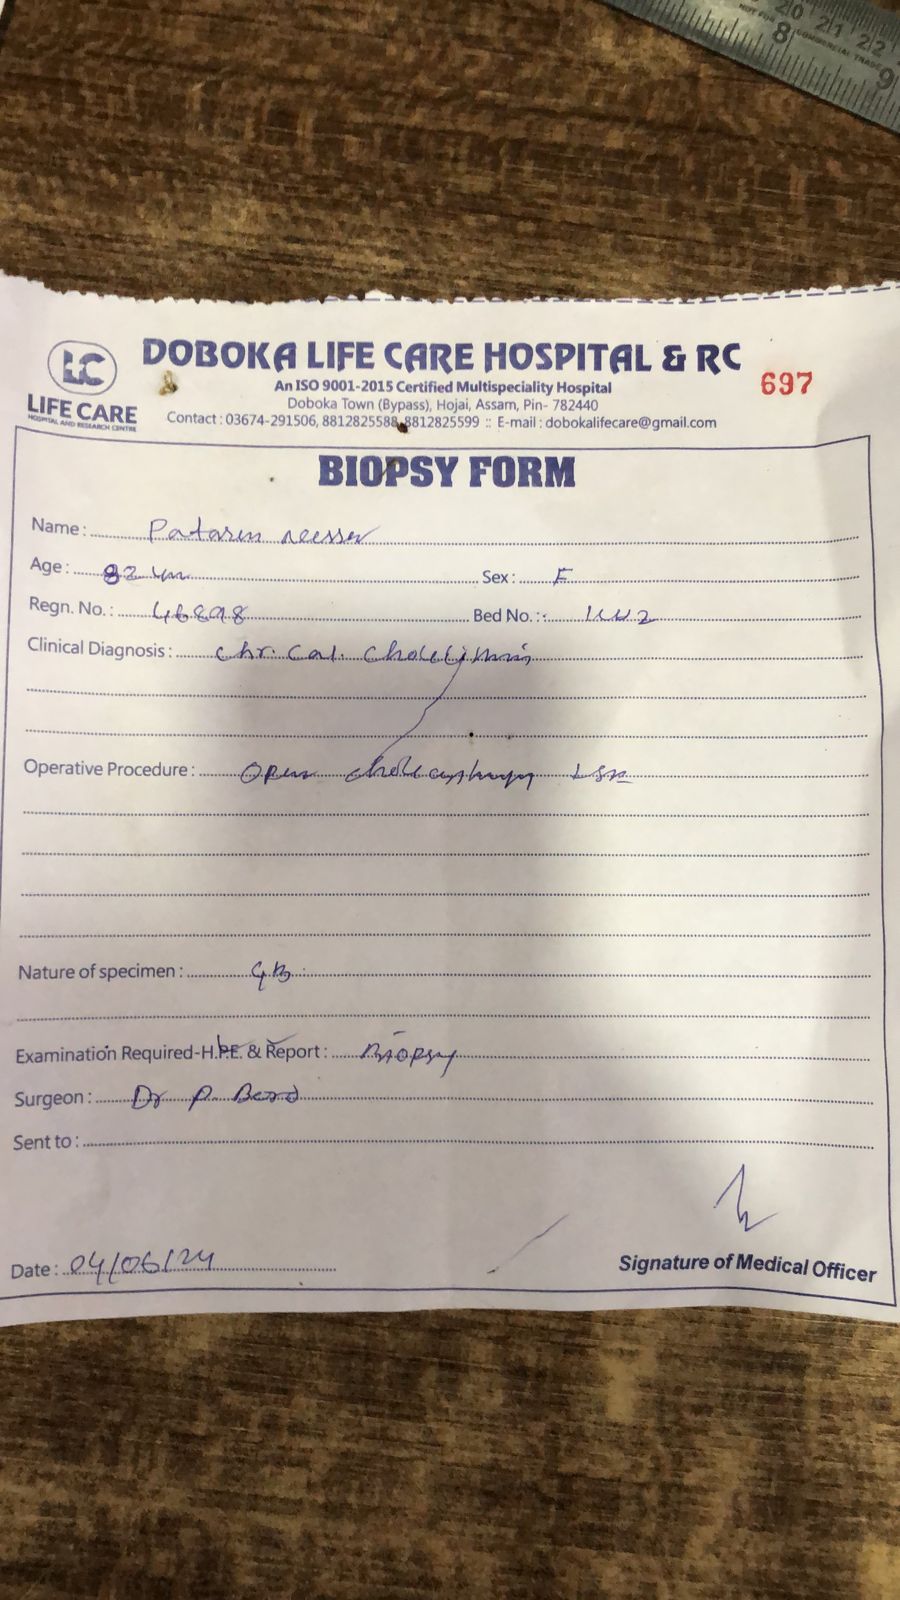 20 21 22
NOT FOR COMMERCIAL TRADE
8 9
LC
DOBOKA LIFE CARE HOSPITAL & RC
697
An ISO 9001-2015 Certified Multispeciality Hospital
LIFE CARE
HOSPITAL AND RESEARCH CENTRE
Doboka Town (Bypass), Hojai, Assam, Pin- 782440
Contact : 03674-291506, 8812825588, 8812825599 :: E-mail : dobokalifecare@gmail.com
BIOPSY FORM
Name :
Age : Sex : F
Regn. No. : Bed No. :
Clinical Diagnosis : Chr. Cal.
Operative Procedure : Open
Nature of specimen : GB
Examination Required-H.P.E. & Report : Biopsy
Surgeon : Dr P.
Sent to :
Date : 04/06/24
Signature of Medical Officer